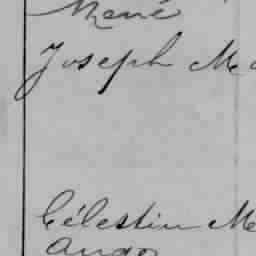 René
Joseph M
Célestin M
Ango